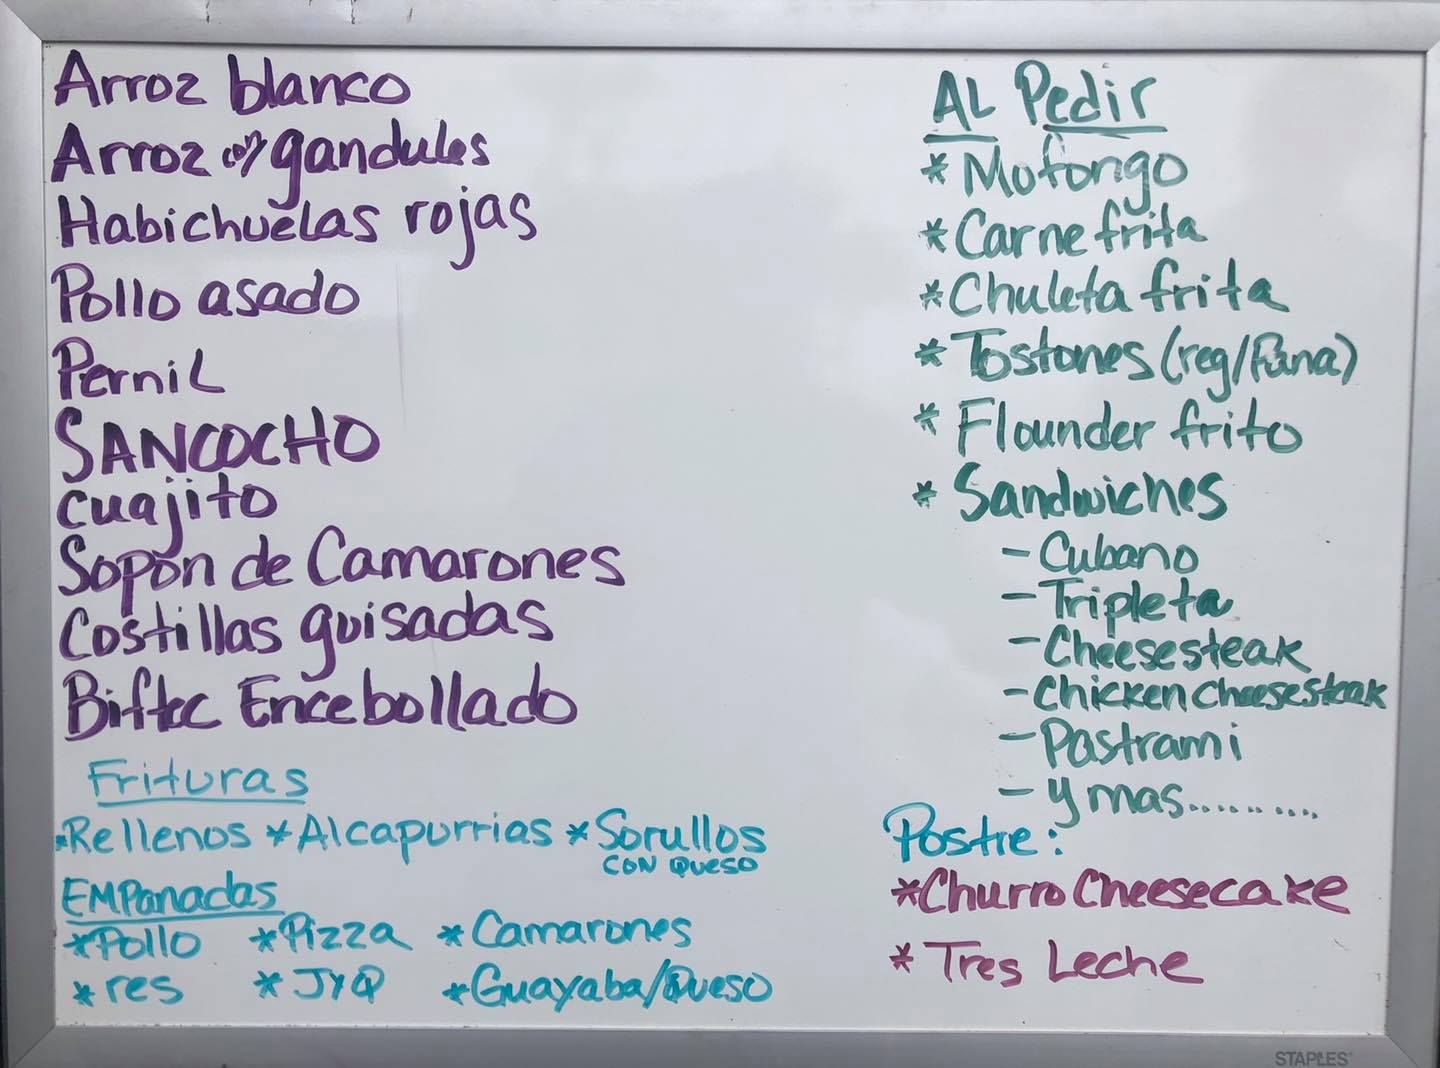 Arroz blanco
Arroz con gandules
Habichuelas rojas
Pollo asado
Pernil
SANCOCHO
cuajito
Sopón de Camarones
Costillas guisadas
Biftec Encebollado
Frituras
*Rellenos *Alcapurrias *Sorullos
CON QUESO
EMPanadas
*Pollo *Pizza *Camarones
*res *JYQ *Guayaba/Queso
AL Pedir
*Mofongo
*Carne frita
*Chuleta frita
*Tostones (reg/Pana)
*Flounder frito
*Sandwiches
-Cubano
-Tripleta
-Cheesesteak
-Chicken cheesesteak
-Pastrami
-y mas..........
Postre:
*Churro Cheesecake
*Tres Leche
STAPLES